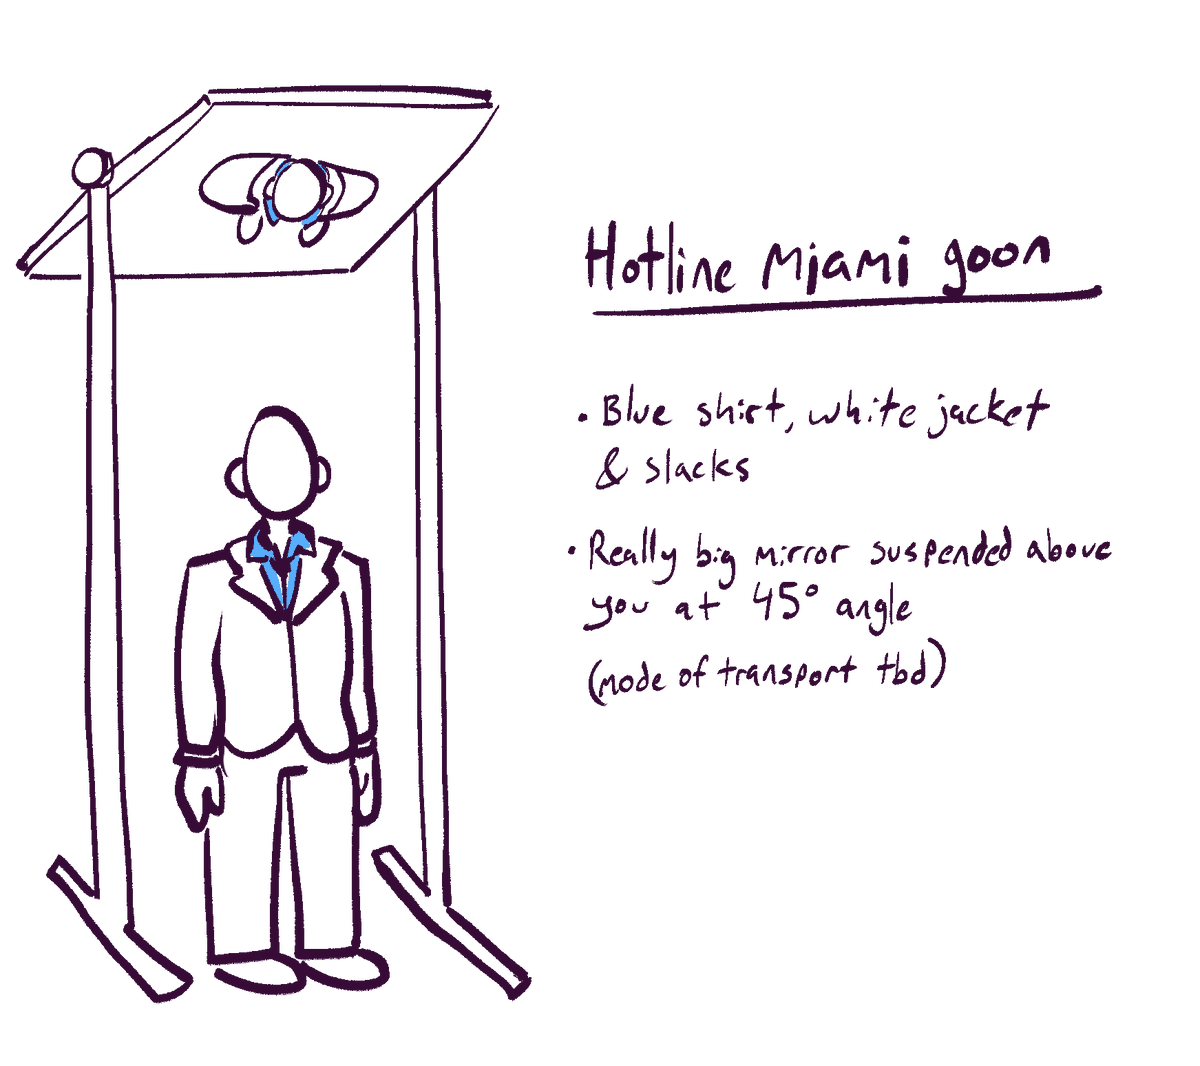 Hotline Miami goon
• Blue shirt, white jacket
& slacks
• Really big mirror suspended above
you at 45° angle
(mode of transport tbd)